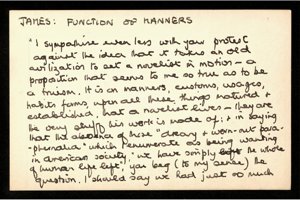 JAMES: FUNCTION OF MANNERS
"I sympathise even less with your protest
against the idea that it takes an old
civilization to set a novelist in motion – a
proposition that seems to me so true as to be
a truism. It is on manners, customs, usages,
habits, forms, upon all these things matured &
established, that a novelist lives – they are
the very stuff his work is made of; & in saying
that in the absence of these "dreary & worn-out para-
-phernalia" which I enumerate as being wanting
in American society, "we have simply left the whole
of human life left", you beg (to my sense) the
question. I should say we had just so much